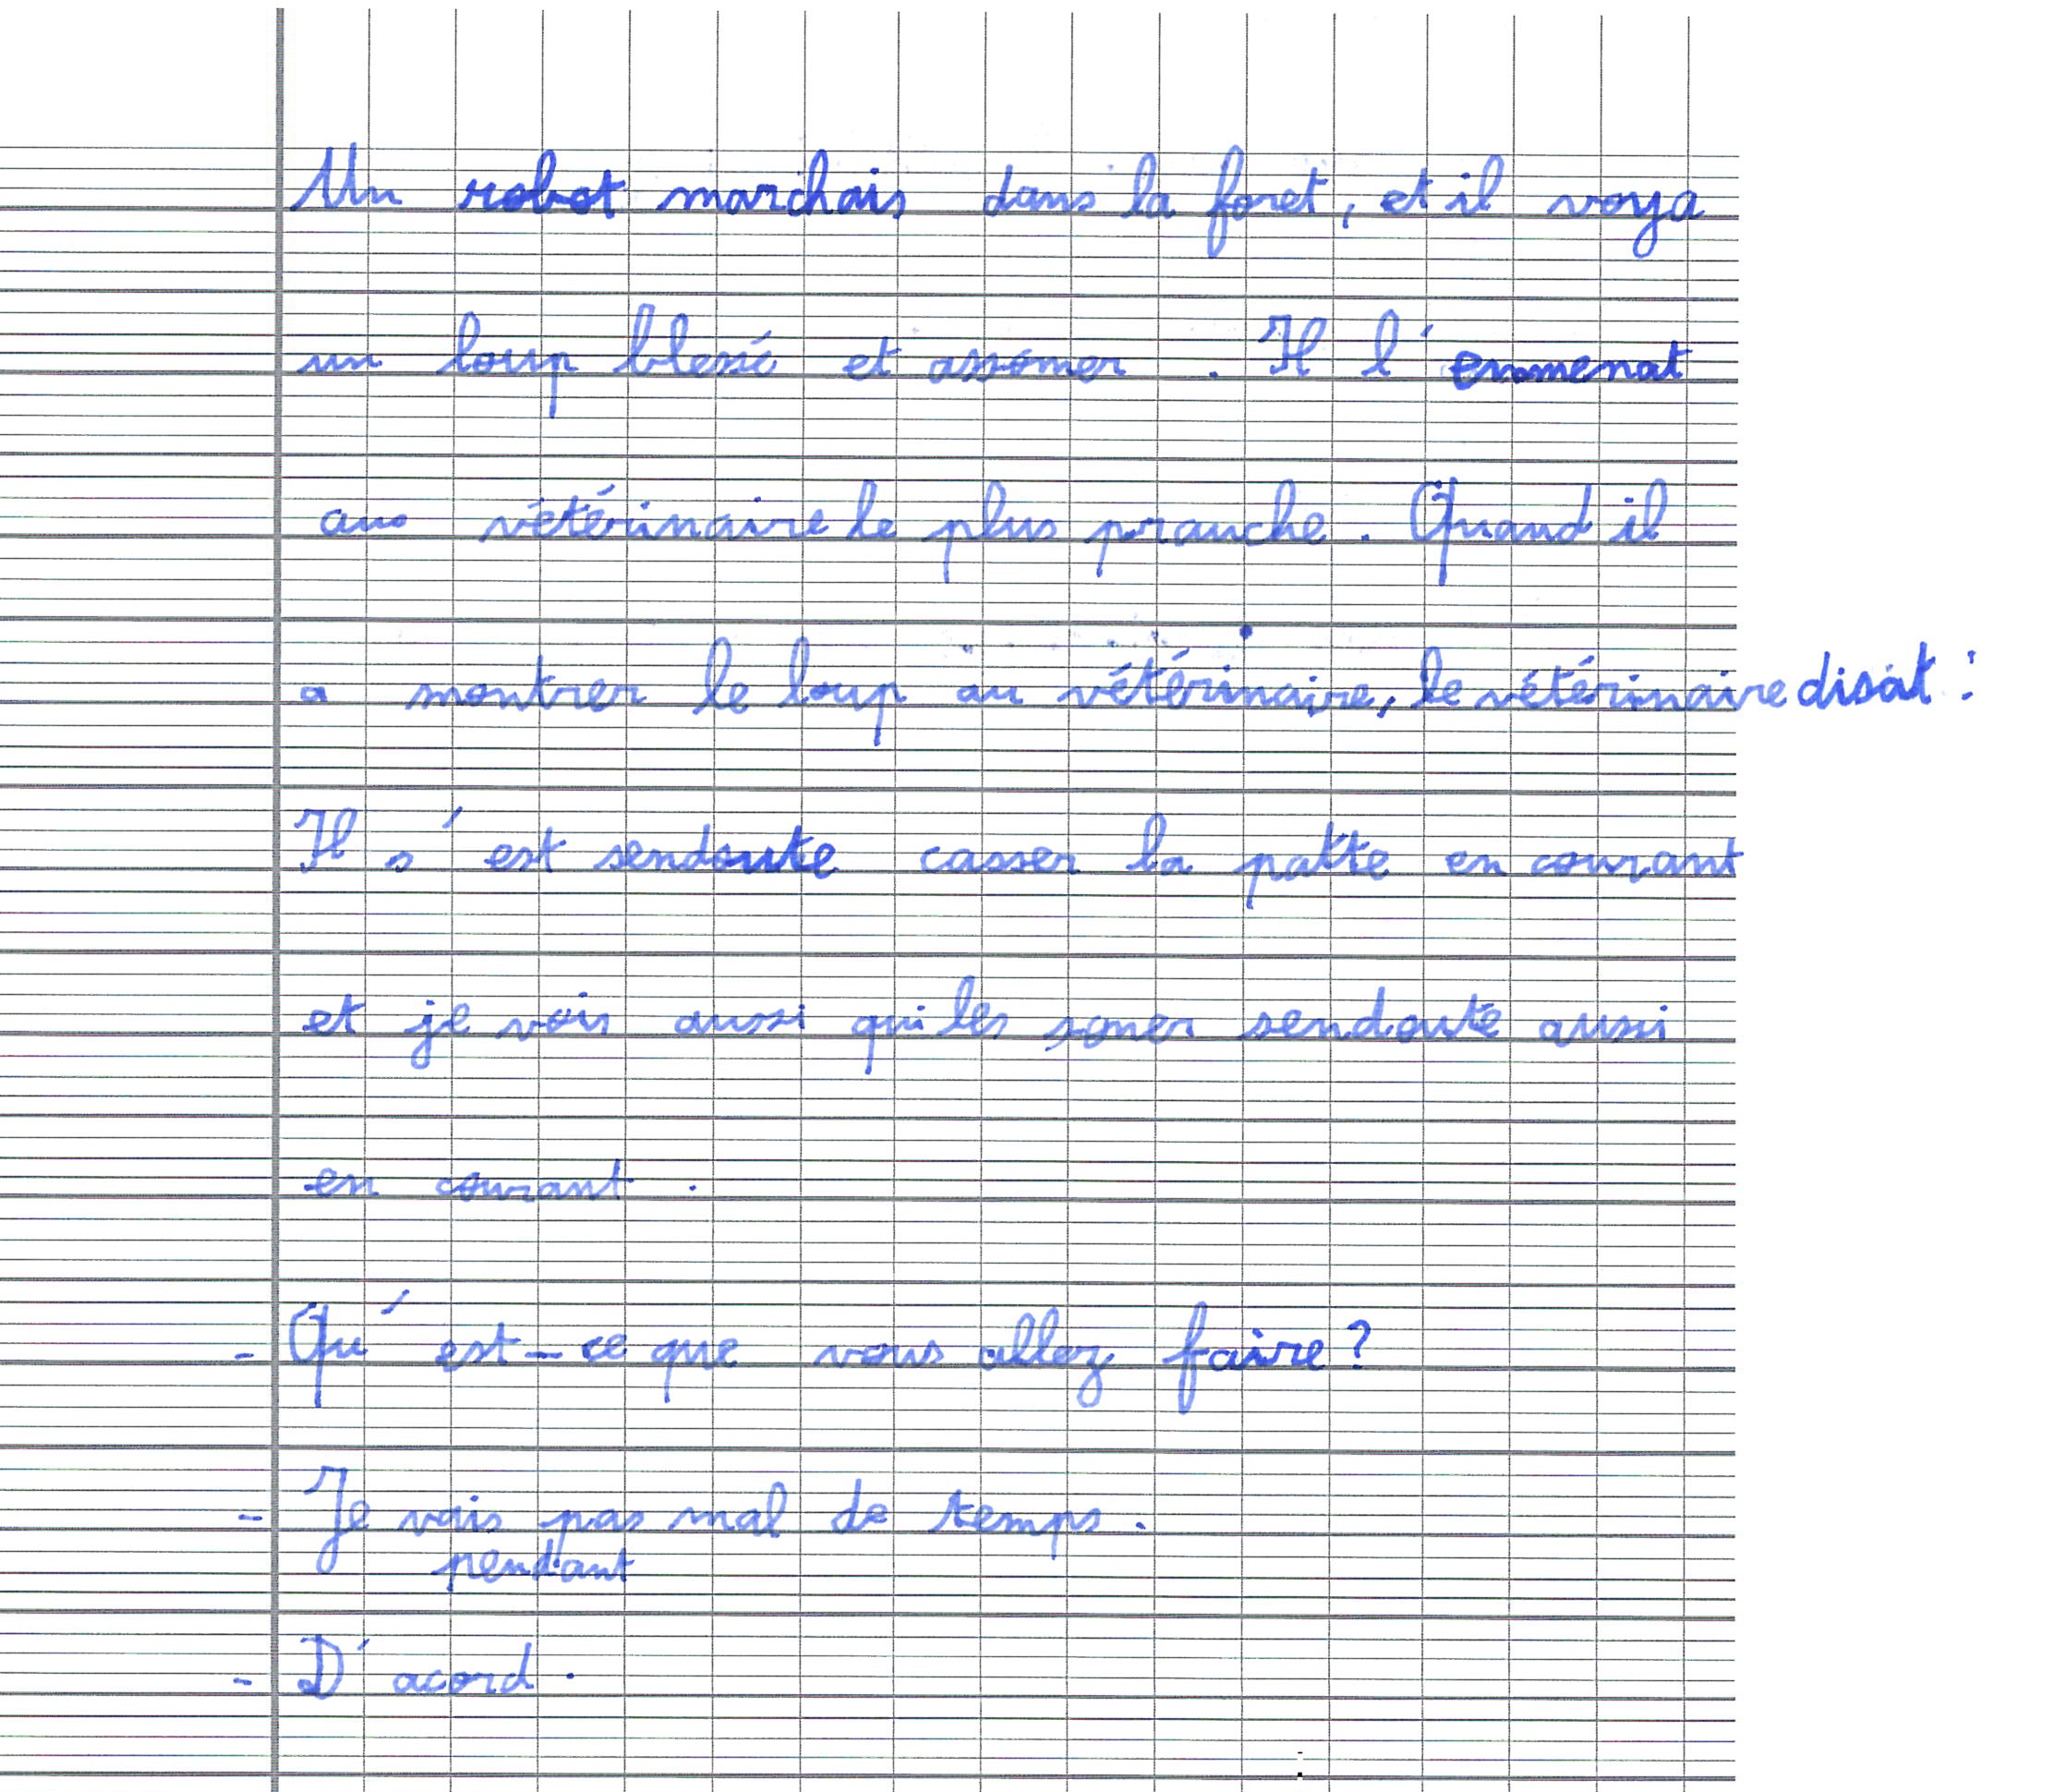 Un robot marchais dans la foret, et il voya
un loup blessé et assomer. Il l'emmenat
aus vétérinaire le plus pranche. Quand il
a montrer le loup au vétérinaire, le vétérinaire disat :
Il s'est sendoute casser la patte en courant
et je vois aussi qui les somer sendoute aussi
en courant.
- Qu'est-ce que vous allez faire?
- Je vais pas mal de temps.
pendant
- D'acord.